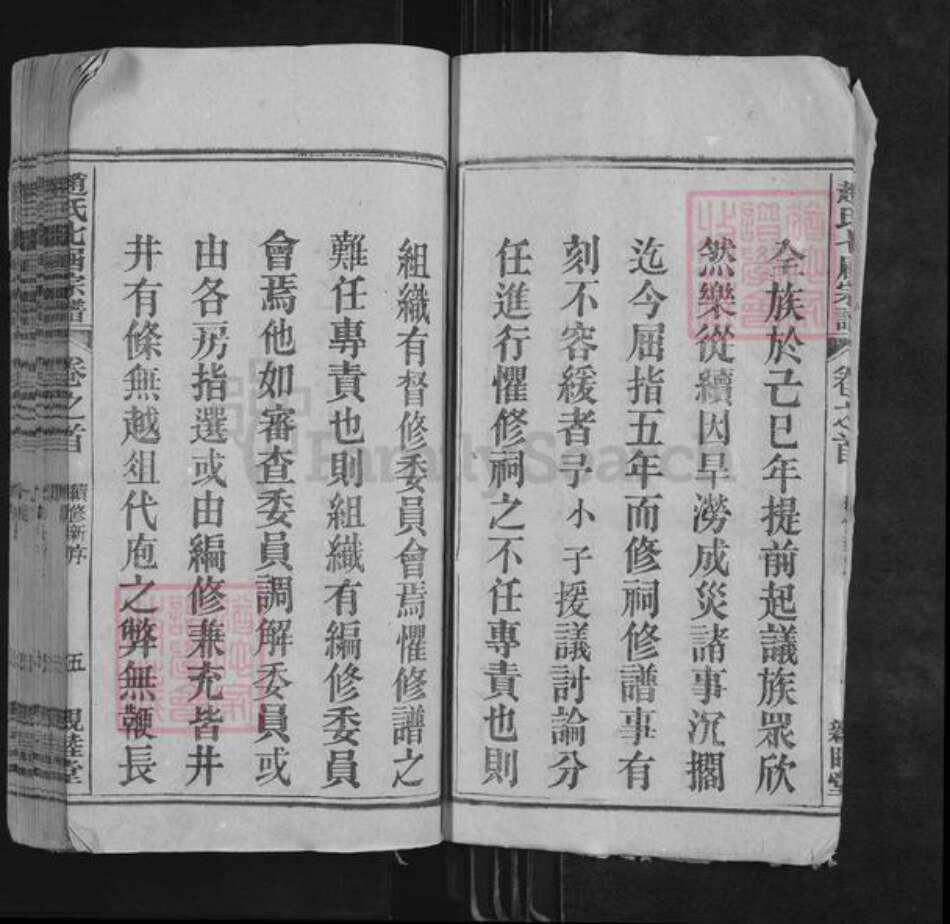 全族於己巳年提前起議族眾欣
然樂從續因旱澇成災諸事沉擱
迄今屈指五年而修祠修譜事有
刻不容緩者予小子援議討論分
任進行懼修祠之不任專責也則
組織有督修委員會焉懼修譜之
難任專責也則組織有編修委員
會焉他如審查委員調解委員或
由各房指選或由編修兼充皆井
井有條無越俎代庖之弊無鞭長
趙氏七屬宗譜
卷之首
續修新序
五
親睦堂
FamilySearch